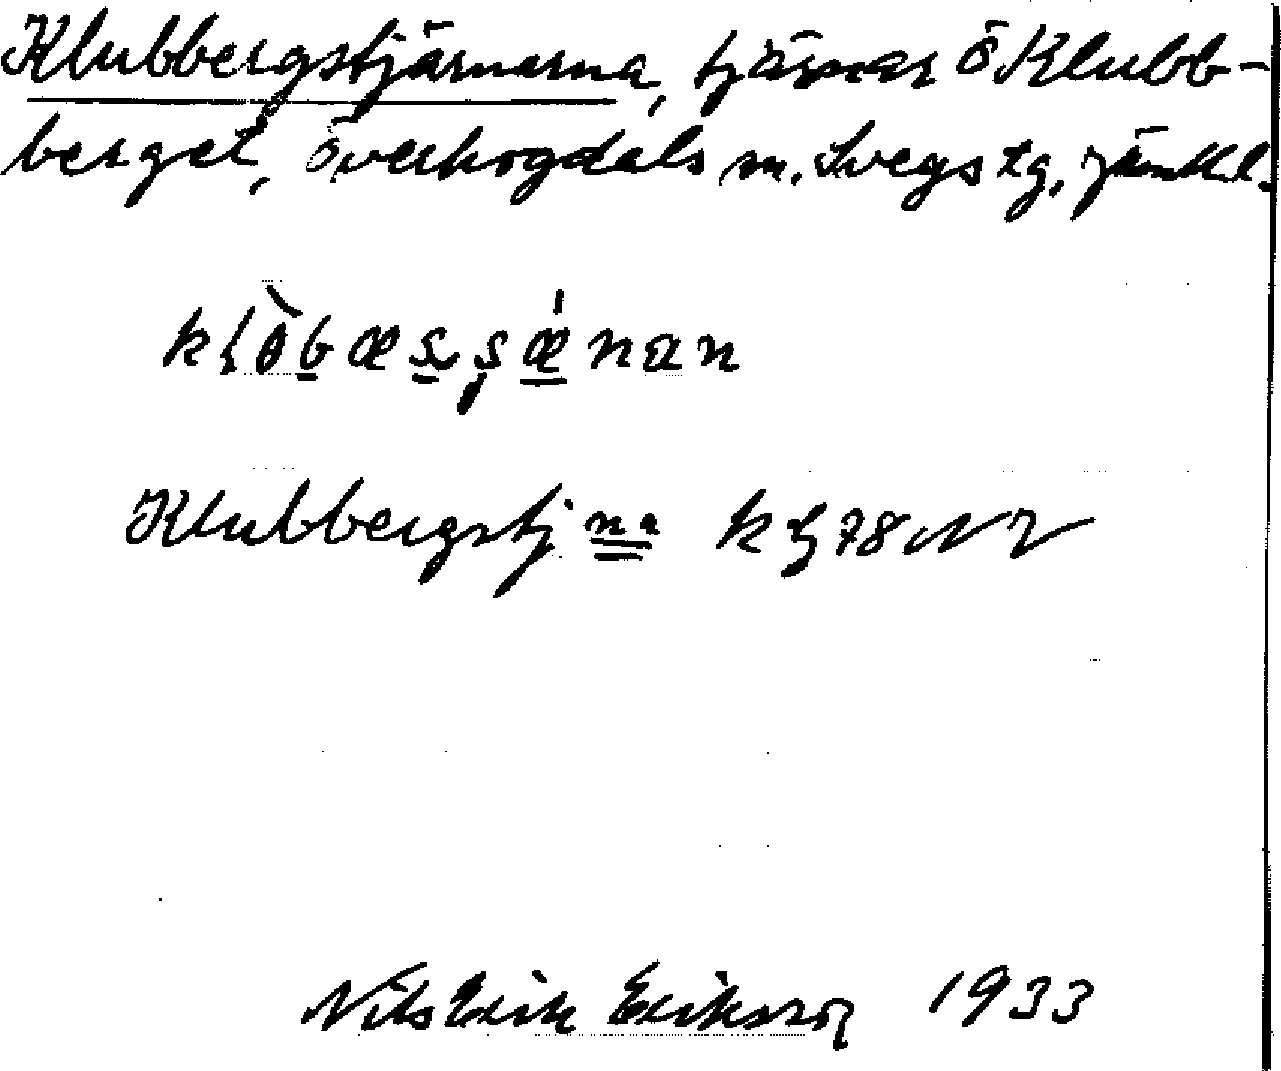 Klubbergstjärnarna, tjärnar ö Klubb-
berget, Överhogdals sn. Svegs tg. Jämtl.
Klubbergstj na k 78 NV
Nils Erik Eriksson 1933